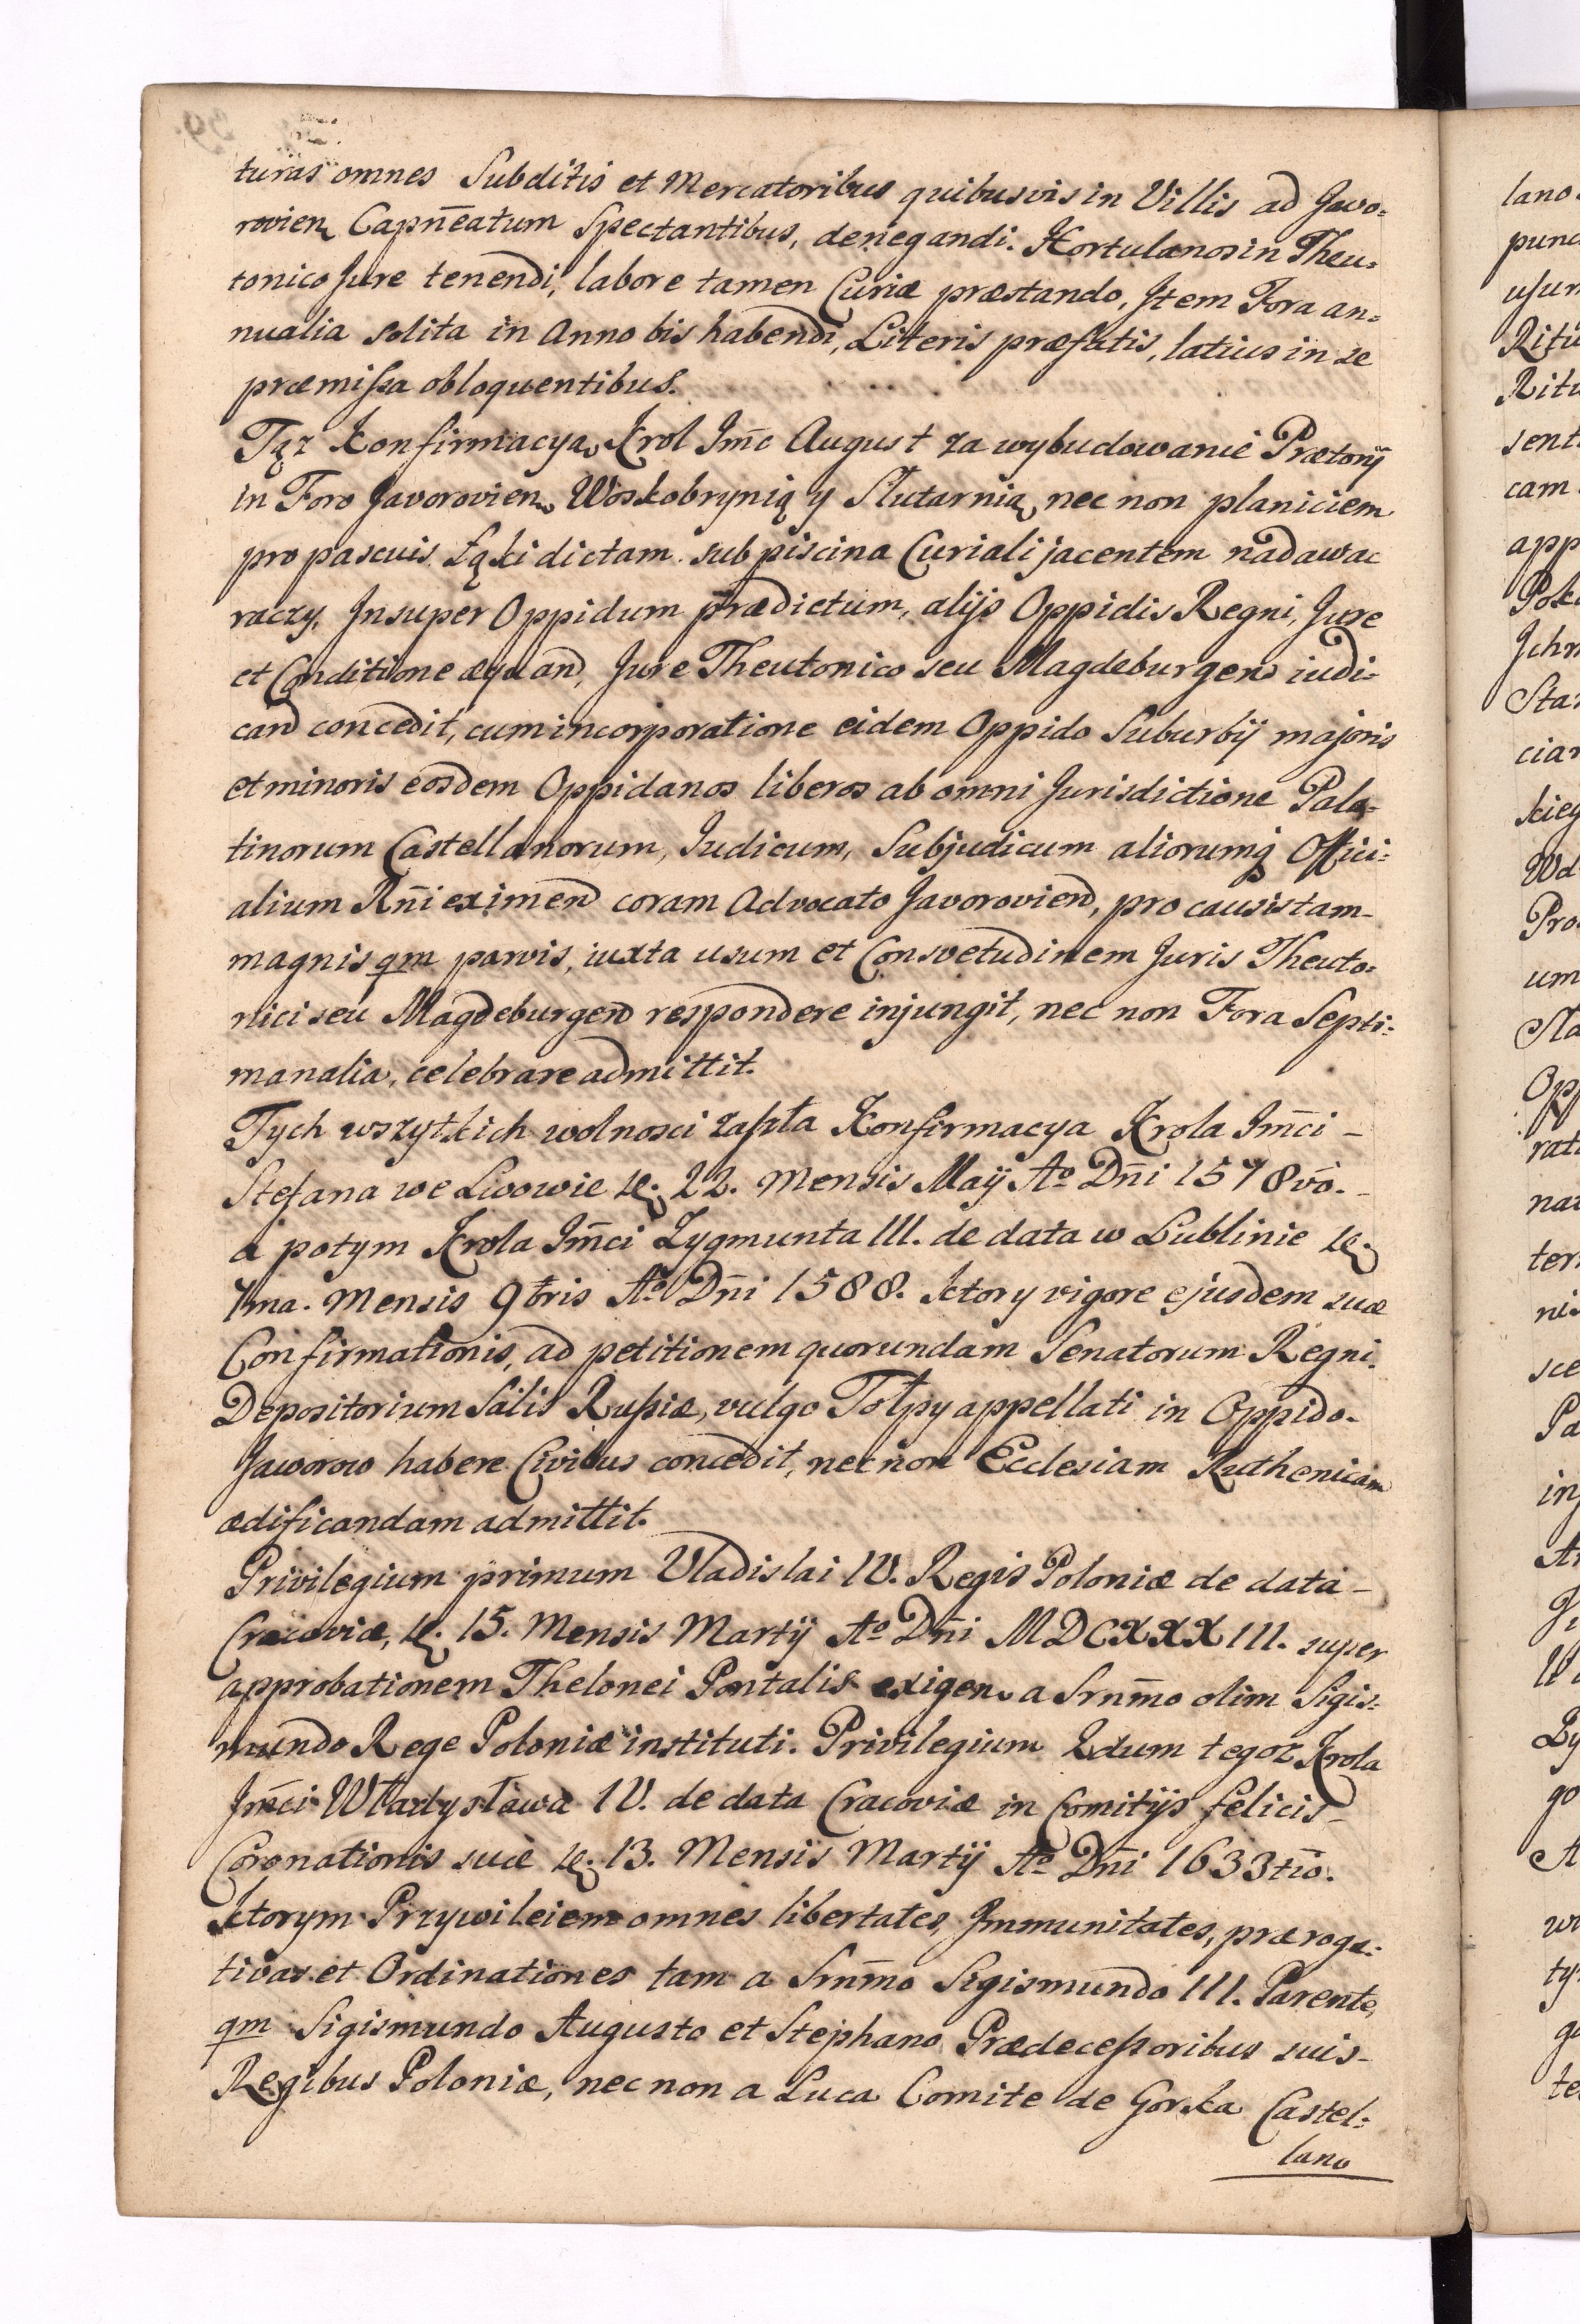 turas omnes Subditis et Mercatoribus quibusvis in Villis ad Javo=
rovien Capn̄eatum Spectantibus, denegandi. Hortulanos in Theu=
tonico Jure tenendi, labore tamen Curiæ præstando, Item Fora an=
nualia solita in Anno bis habendi, Literis præfatis, latius in se
præmissa obloquentibus.
Tąż Konfirmacyą Krol Jm̄c August za wybudowanie Prætorij
in Foro Javorovien Woskobrynią y Slutarnią, nec non planiciem
pro pascuis Łąki dictam sub piscina Curiali jacentem nadawac
raczy, Insuper Oppidum prædictum, alijs Oppidis Regni, Jure
et Conditione æquand, Jure Theutonico seu Magdeburgen iudi=
cand concedit, cum incorporatione eidem Oppido Suburbij majoris
et minoris eosdem Oppidanos liberos ab omni Jurisdictione Pala=
tinorum Castellanorum, Judicum, Subjudicum aliorumq Offici=
alium Rn̄i eximend coram Advocato Javorovien, pro causis tam
magnis qm parvis, iuxta usum et Consvetudinem Juris Theuto=
nici seu Magdeburgen respondere injungit, nec non Fora Septi=
manalia, celebrare admittit.
Tych wszytkich wolnosci zaszła Konfirmacya Krola Jm̄ci –
Stefana we Lwowie d. 22. Mensis Maij Ao Dn̄i 1578vō. –
a potym Krola Jm̄ci Zygmunta III. de data w Lublinie d.
7ma. Mensis 9bris Ao Dn̄i 1588. ktory vigore ejusdem suæ
Confirmationis, ad petitionem quorundam Senatorum Regni
Depositorium Salis Russiæ, vulgo Tołpy appellati in Oppido
Jaworow habere Civibus concedit, nec non Ecclesiam Ruthenicam
ædificandam admittit.
Privilegium primum Vladislai IV. Regis Poloniæ de data –
Cracoviæ, d. 15. Mensis Martij Ao Dn̄i MDCXXXIII. super
approbationem Thelonei Pontalis exigen a Srn̄mo olim Sigis=
mundo Rege Poloniæ instituti. Privilegium 2dum tegoz Krola
Jm̄ci Władysława IV. de data Cracoviæ in Comitijs felicis –
Coronationis suæ d. 13. Mensis Martij Ao Dn̄i 1633tiō.
ktorym Przywileiem omnes libertates, Immunitates, præroga=
tivas et Ordinationes tam a Srn̄mo Sigismundo III. Parente,
qm Sigismundo Augusto et Stephano Prædecessoribus suis –
Regibus Poloniæ, nec non a Luca Comite de Gorka Castel=
lano